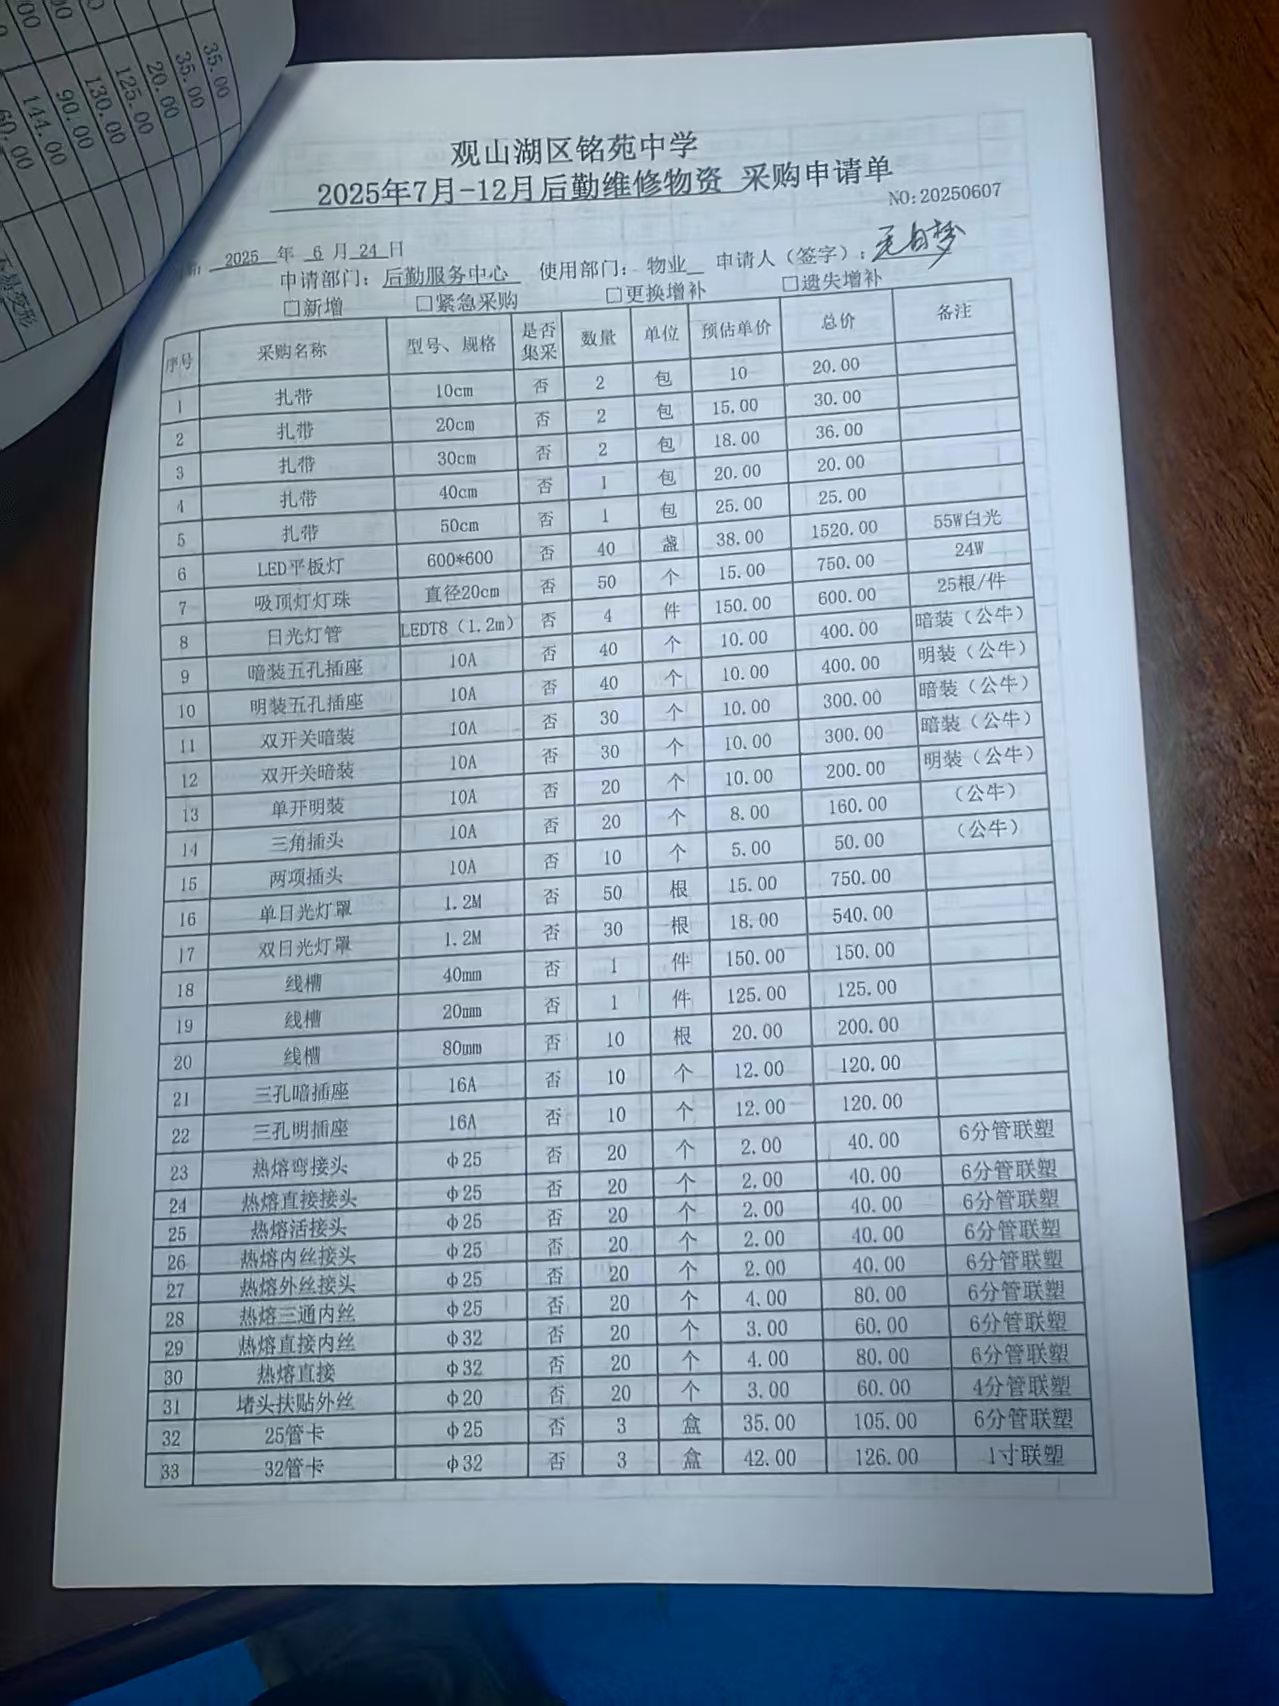 35.00
35.00
20.00
125.00
130.00
90.00
144.00
观山湖区铭苑中学
2025年7月-12月后勤维修物资 采购申请单
NO:20250607
2025 年 6 月 24 日
申请部门：后勤服务中心 使用部门：物业 申请人（签字）：
□新增 □紧急采购 □更换增补 □遗失增补
序号 采购名称 型号、规格 是否集采 数量 单位 预估单价 总价 备注
1 扎带 10cm 否 2 包 10 20.00
2 扎带 20cm 否 2 包 15.00 30.00
3 扎带 30cm 否 2 包 18.00 36.00
4 扎带 40cm 否 1 包 20.00 20.00
5 扎带 50cm 否 1 包 25.00 25.00
6 LED平板灯 600*600 否 40 盏 38.00 1520.00 55W白光
7 吸顶灯灯珠 直径20cm 否 50 个 15.00 750.00 24W
8 日光灯管 LEDT8（1.2m） 否 4 件 150.00 600.00 25根/件
9 暗装五孔插座 10A 否 40 个 10.00 400.00 暗装（公牛）
10 明装五孔插座 10A 否 40 个 10.00 400.00 明装（公牛）
11 双开关暗装 10A 否 30 个 10.00 300.00 暗装（公牛）
12 双开关暗装 10A 否 30 个 10.00 300.00 暗装（公牛）
13 单开明装 10A 否 20 个 10.00 200.00 明装（公牛）
14 三角插头 10A 否 20 个 8.00 160.00 （公牛）
15 两项插头 10A 否 10 个 5.00 50.00 （公牛）
16 单日光灯罩 1.2M 否 50 根 15.00 750.00
17 双日光灯罩 1.2M 否 30 根 18.00 540.00
18 线槽 40mm 否 1 件 150.00 150.00
19 线槽 20mm 否 1 件 125.00 125.00
20 线槽 80mm 否 10 根 20.00 200.00
21 三孔暗插座 16A 否 10 个 12.00 120.00
22 三孔明插座 16A 否 10 个 12.00 120.00
23 热熔弯接头 φ25 否 20 个 2.00 40.00 6分管联塑
24 热熔直接接头 φ25 否 20 个 2.00 40.00 6分管联塑
25 热熔活接头 φ25 否 20 个 2.00 40.00 6分管联塑
26 热熔内丝接头 φ25 否 20 个 2.00 40.00 6分管联塑
27 热熔外丝接头 φ25 否 20 个 2.00 40.00 6分管联塑
28 热熔三通内丝 φ25 否 20 个 4.00 80.00 6分管联塑
29 热熔直接内丝 φ32 否 20 个 3.00 60.00 6分管联塑
30 热熔直接 φ32 否 20 个 4.00 80.00 6分管联塑
31 堵头扶贴外丝 φ20 否 20 个 3.00 60.00 4分管联塑
32 25管卡 φ25 否 3 盒 35.00 105.00 6分管联塑
33 32管卡 φ32 否 3 盒 42.00 126.00 1寸联塑